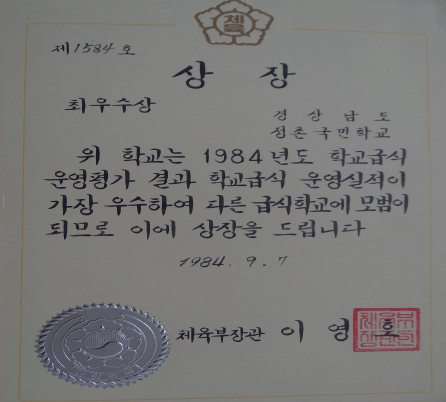 체육
제1584호
상장
최우수상
경상남도
정촌국민학교
위 학교는 1984년도 학교급식
운영평가 결과 학교급식 운영실적이
가장 우수하여 다른 급식학교에 모범이
되므로 이에 상장을 드립니다
1984. 9. 7
체육부장관 이영호